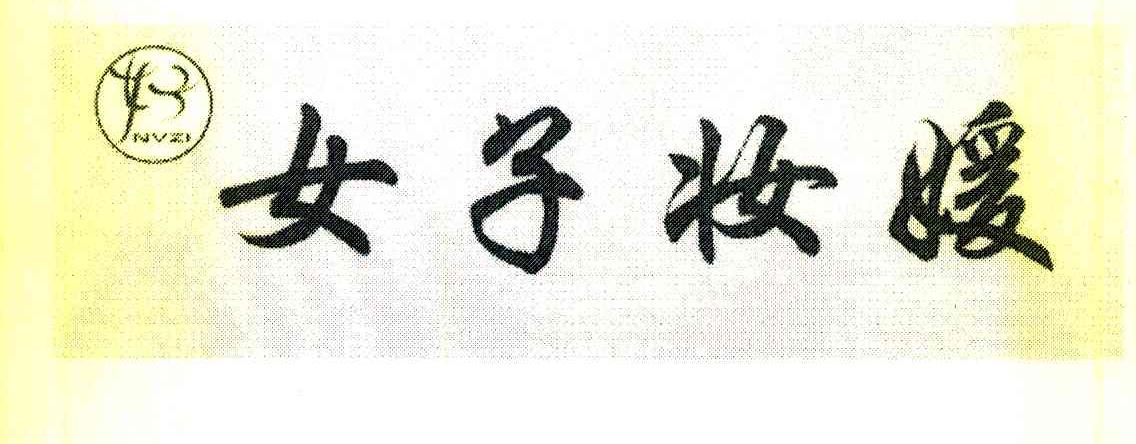 NVZI
女子妆媛